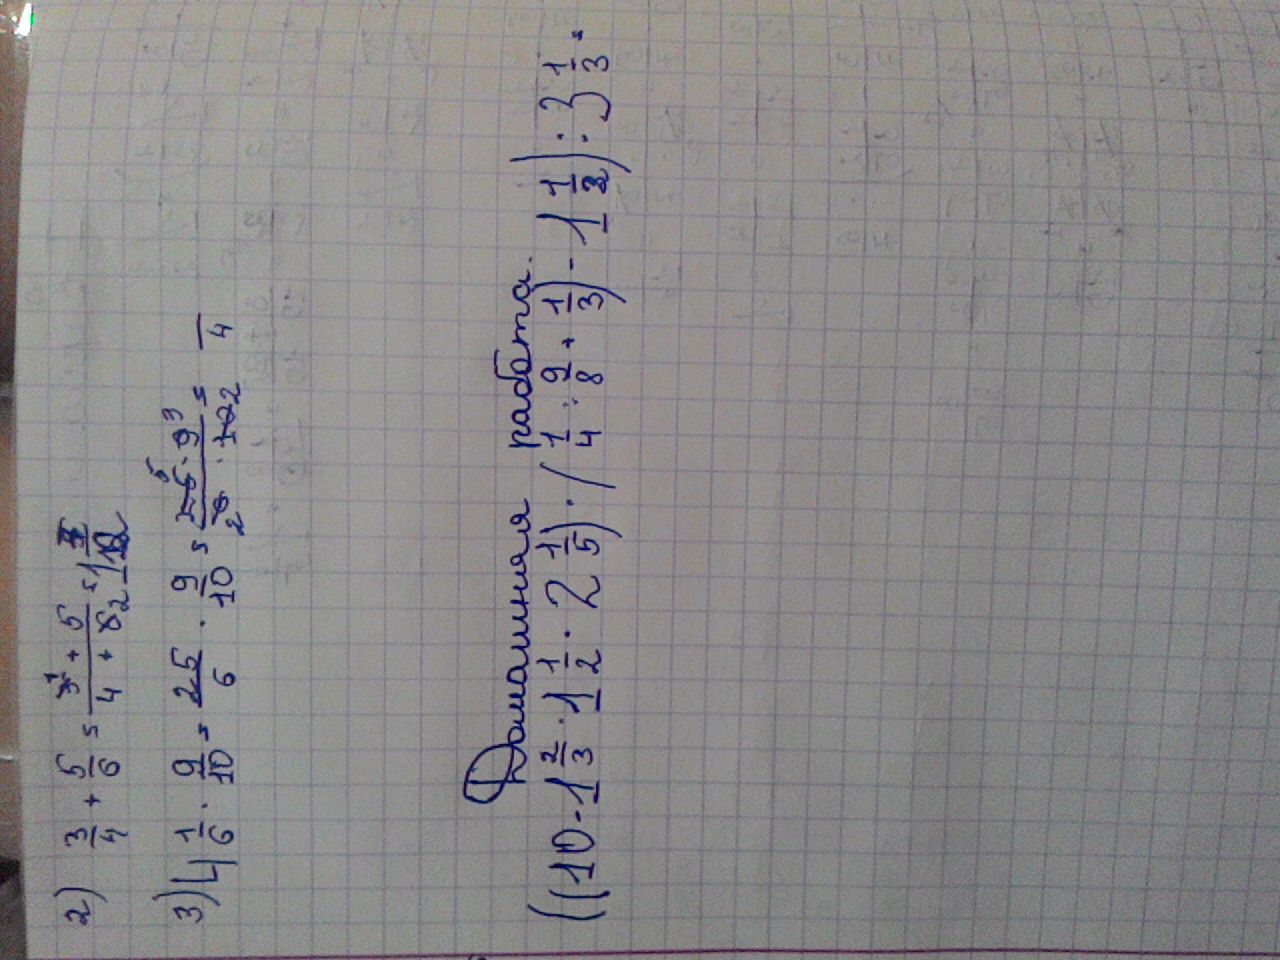 2) 3/4 + 5/6 = 3¹ + 5 / 4 + 6₂ = 1
3) 4 1/6 · 9/10 = 25/6 · 9/10 = 25⁵ · 9³ / 6₂ · 10₂ = /4
Домашняя работа.
((10 - 1 2/3 · 1 1/2 · 2 1/5) · (1/4 : 9/8 + 1/3) - 1 1/2) : 3 1/3 =